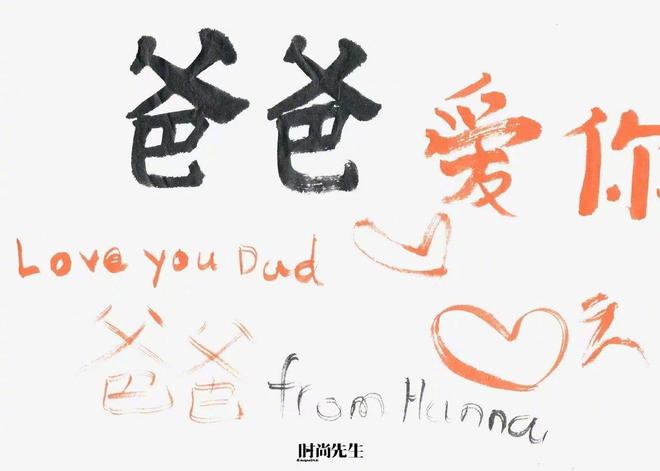 爸爸爱你
Love you Dad
爸爸
from Hanna
时尚先生
Esquire